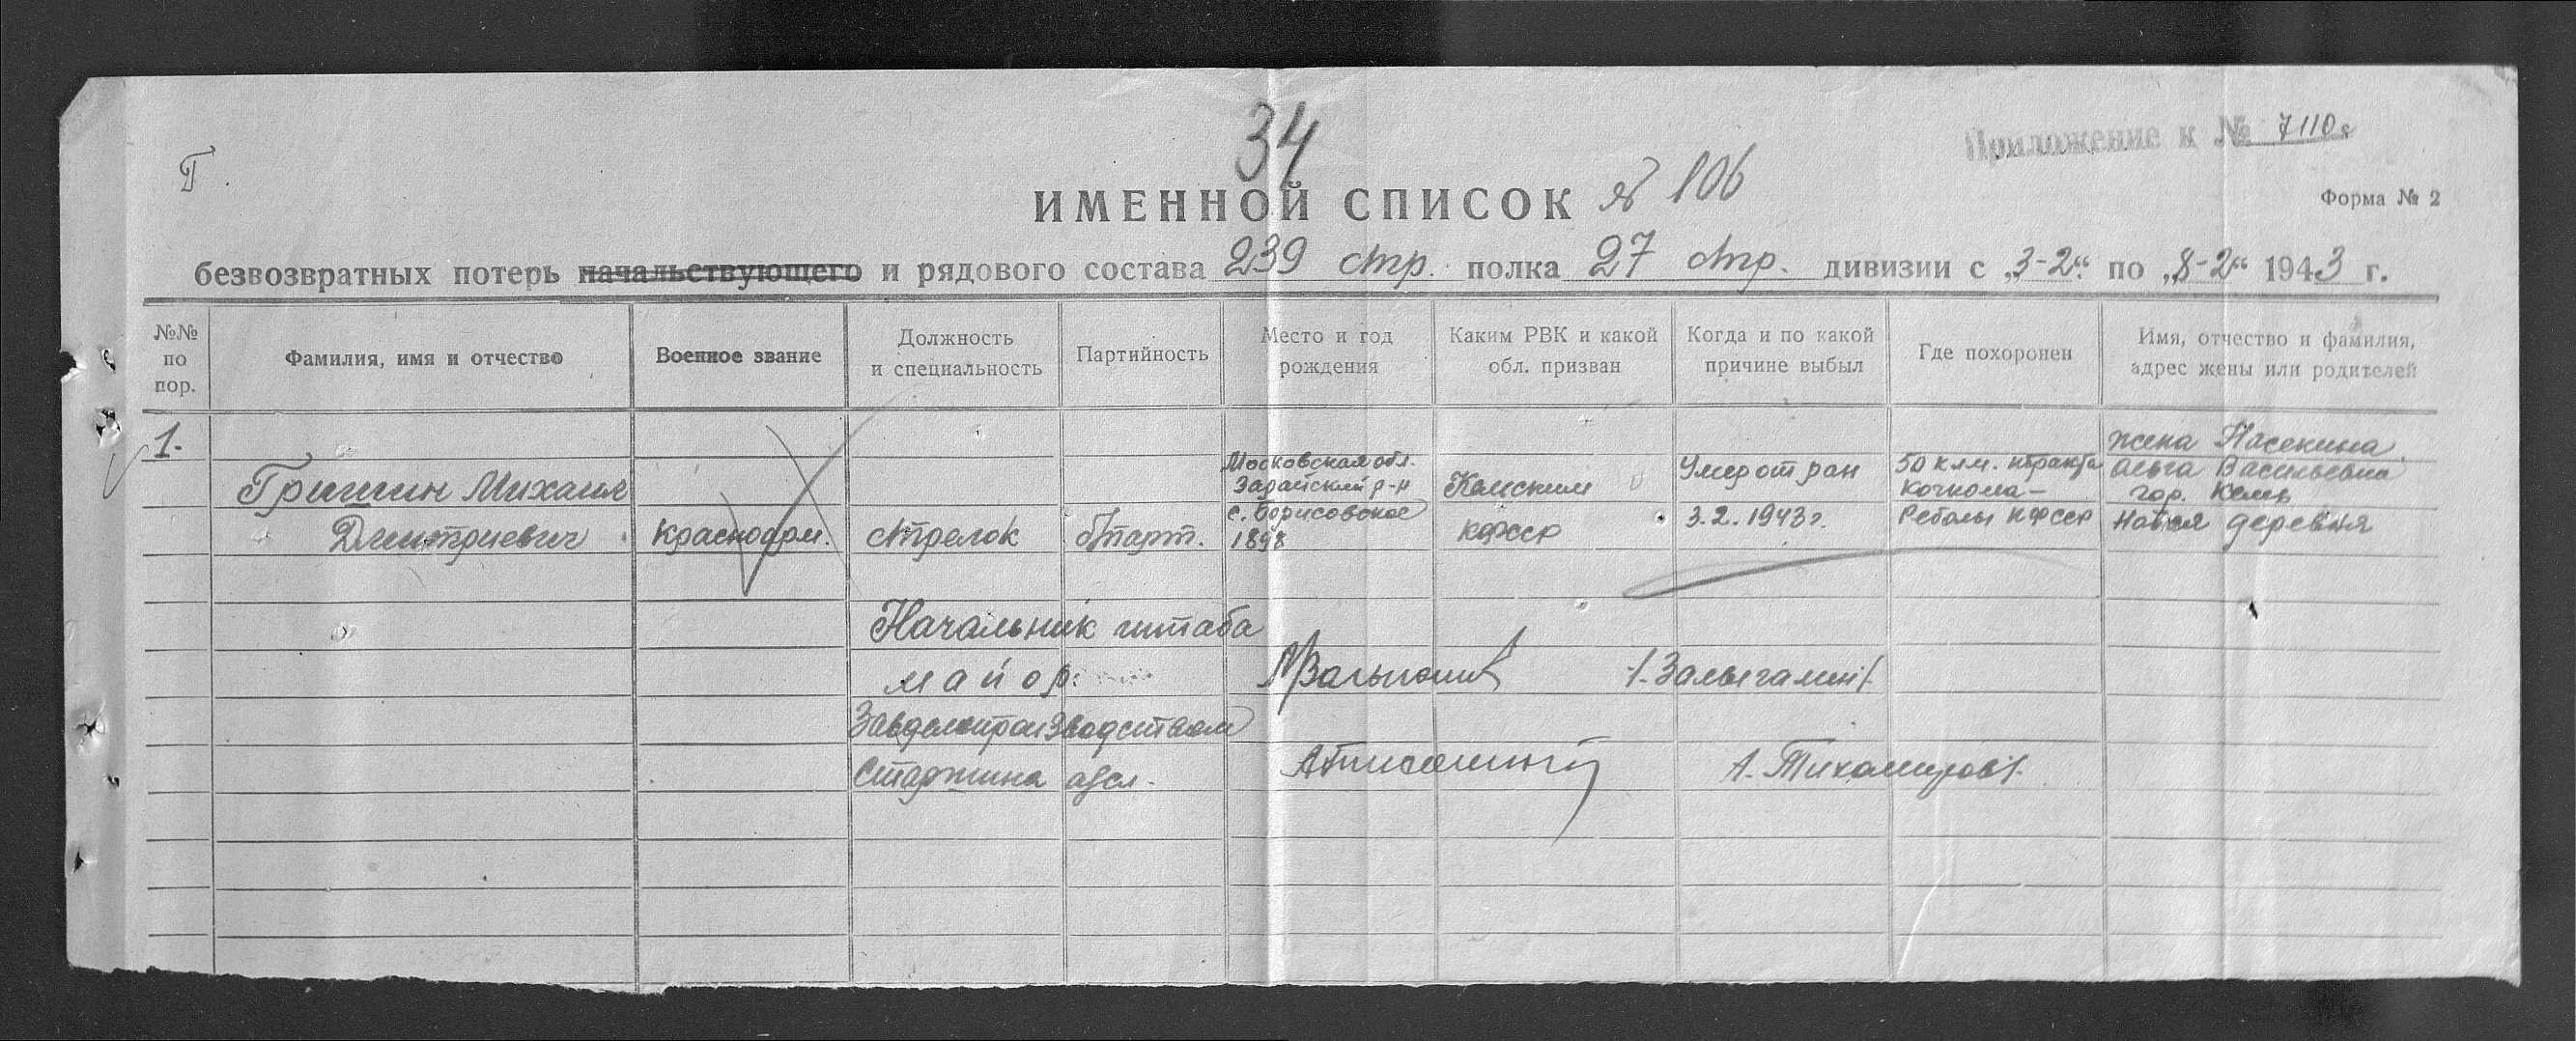 34
Приложение к № 7110с
Г.
ИМЕННОЙ СПИСОК № 106
Форма № 2
безвозвратных потерь начальствующего и рядового состава 239 стр. полка 27 стр. дивизии с „3-2“ по „8-2“ 1943 г.
№№ по пор.
Фамилия, имя и отчество
Военное звание
Должность и специальность
Партийность
Место и год рождения
Каким РВК и какой обл. призван
Когда и по какой причине выбыл
Где похоронен
Имя, отчество и фамилия, адрес жены или родителей
1.
Гришин Михаил
Дмитриевич
Красноарм.
Стрелок
б/парт.
Московская обл.
Зарайский р-н
с. Борисовское
1898
Кемским
КФССР
Умер от ран
3.2.1943 г.
50 клм. тракта
Кочкома-
Реболы КФССР
жена Насекина
Ольга Васильевна
гор. Кемь
Новая деревня
Начальник штаба
майор
/.Залыгалин/.
Завделопроизводством
Старшина а/сл.
/.Тихомиров/.